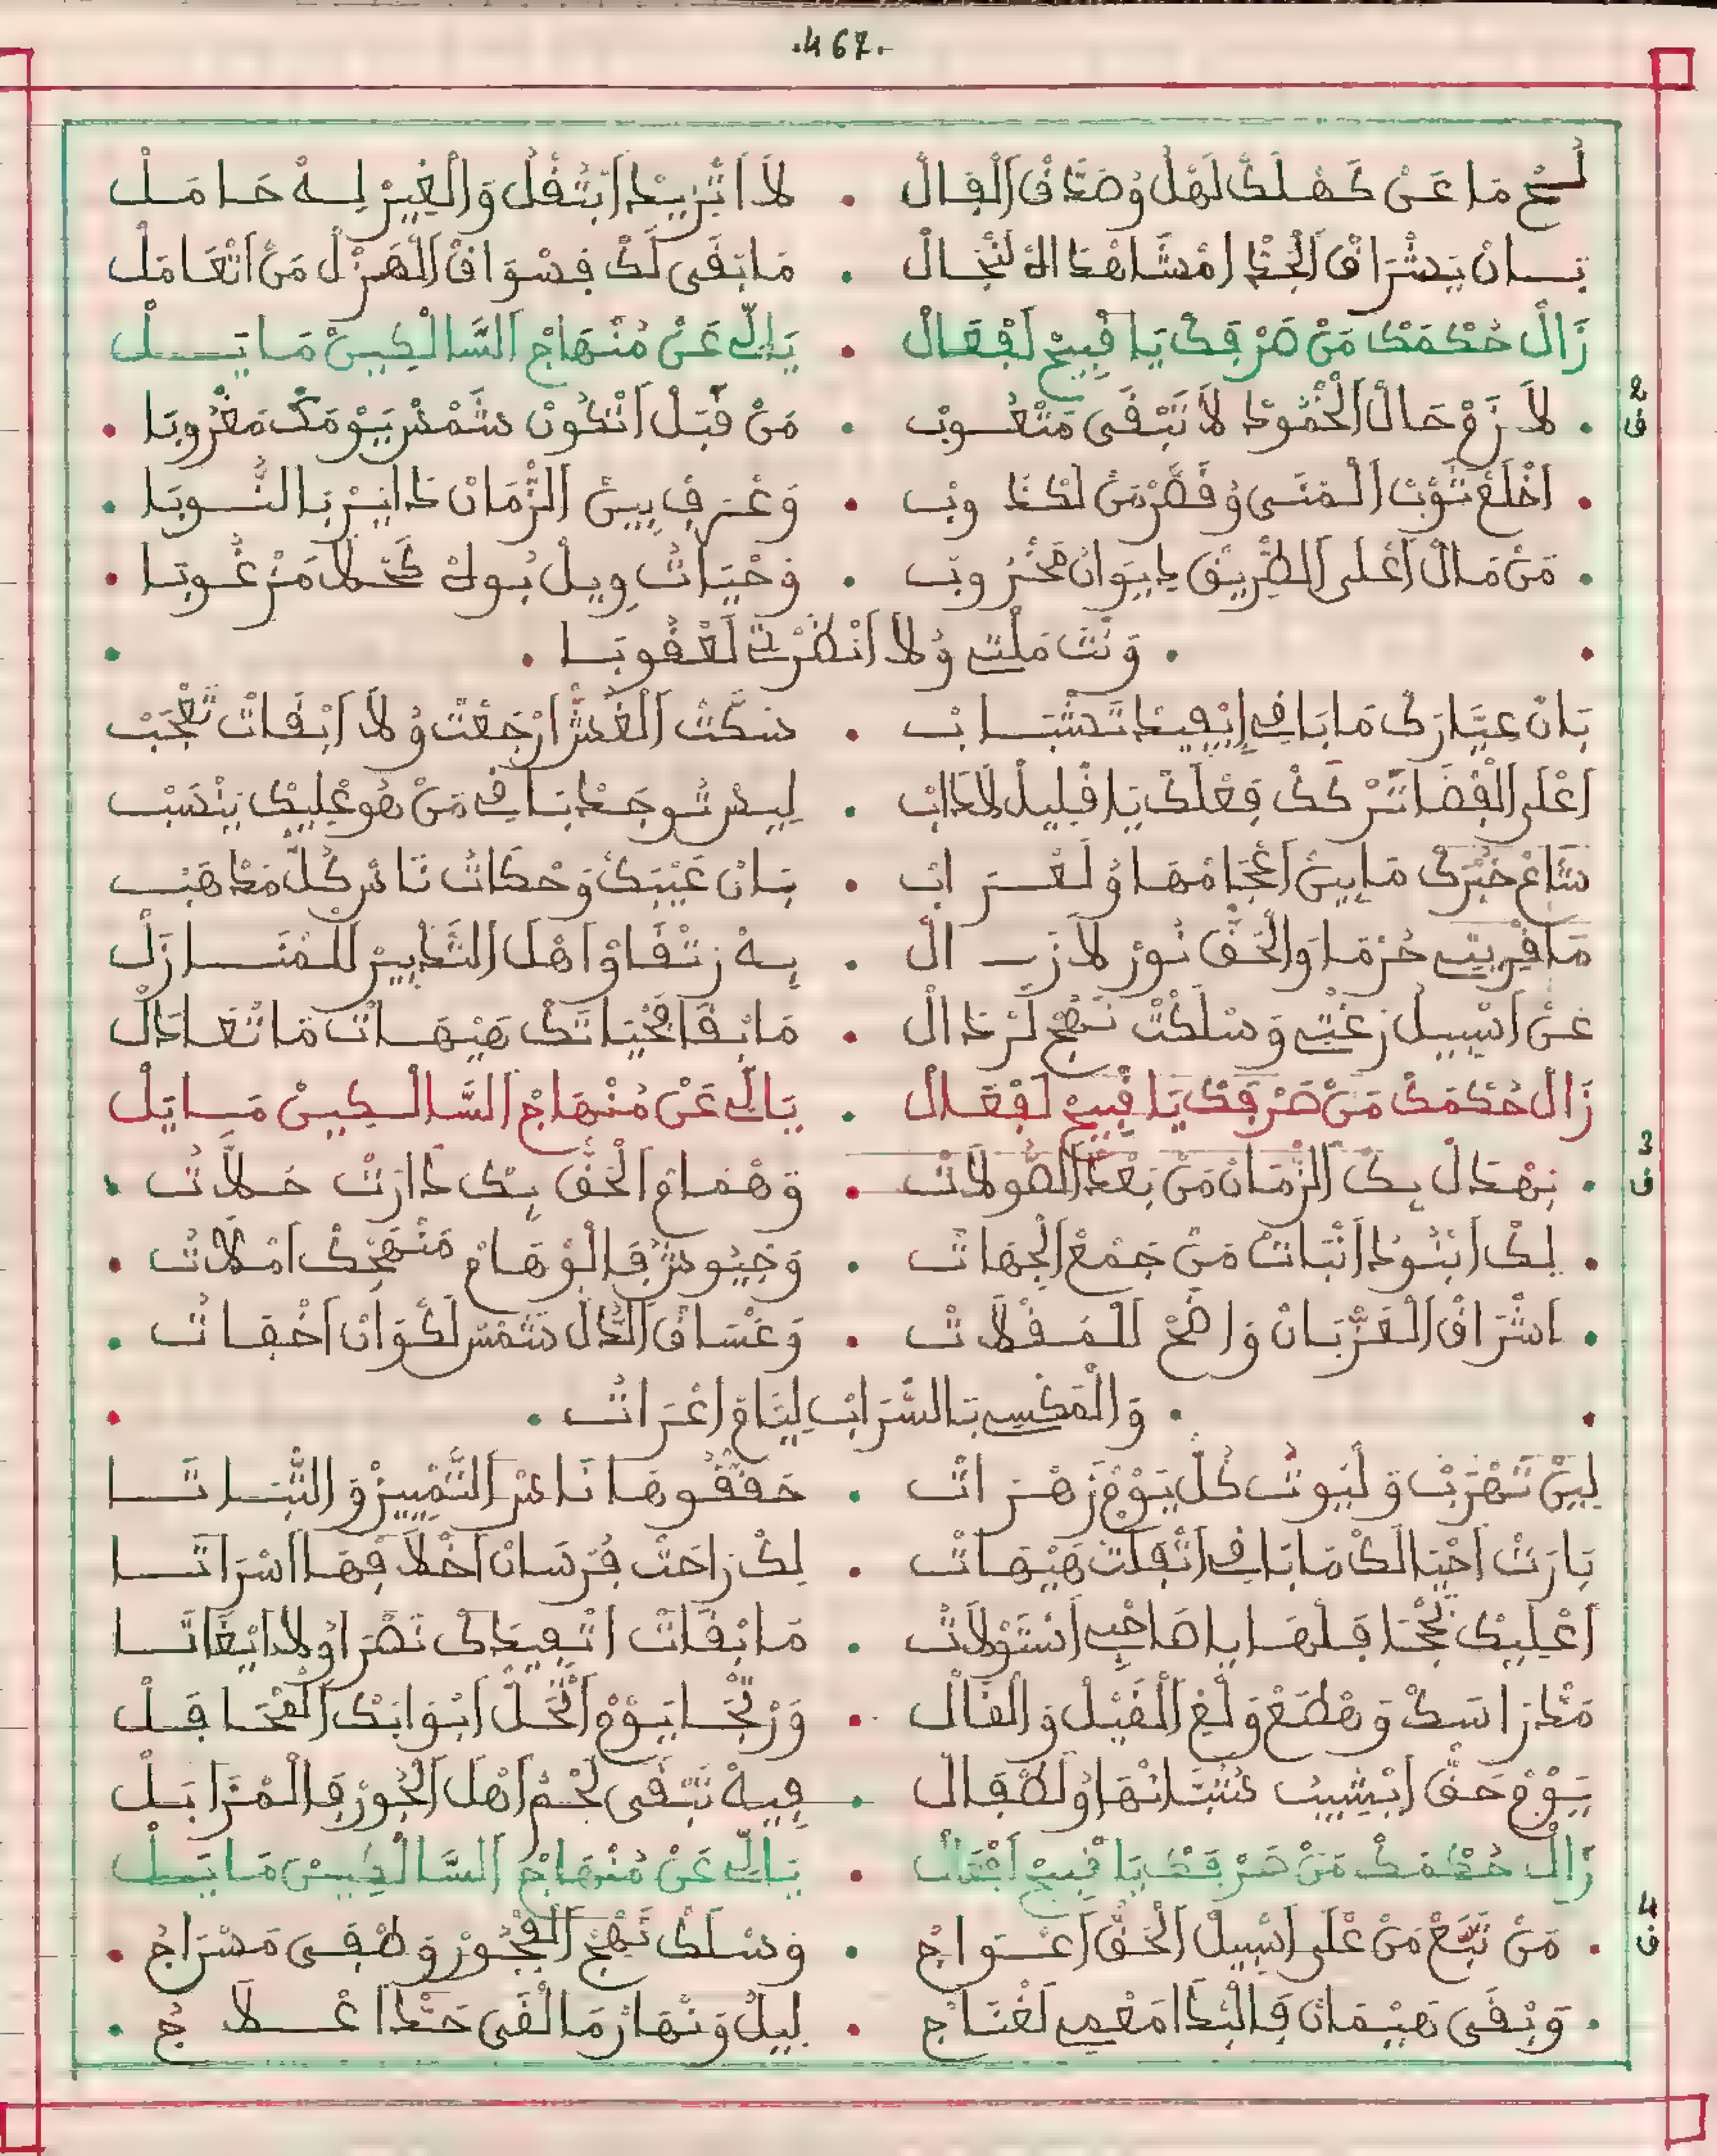 .467.
لُحْ مَا عَنْ كَهْلَكْ لَهْلُ وُصَدَّقْ اَلْفَالْ • لاَ اتْزِيدْ اَبْتُقْلْ وَالْغِيرْ لِهْ حَامَلْ
بَانْ يَشْرَاقْ اَلْحَقْ امْشَاهْدَاكْ لَنْجَالْ • مَا بْقَى لَكْ فِسْوَاقْ اَلْهَزْلْ مَنْ اَتْعَامَلْ
زَالْ حُكْمَكْ مَنْ صَرْفَكْ يَا قْبِيحْ لَفْعَالْ • يَالِّي عَنْ مُنْهَاجْ اَلسَّالْكِينْ مَايَلْ
2 ف
• لاَزَمْ حَالْ اَلْخْمُودْ لاَ تَبْقَى مَتْعُوبْ • مَنْ قْبَلْ اَتْكُونْ شَمْسْ يَوْمَكْ مَغْرُوبَا •
• اَخْلَعْ ثَوْبْ اَلْمْنَى وُقَصَّرْ مَنْ لَكْدُوبْ • وَعْرَفْ بِينْ اَلزْمَانْ دَايَرْ بَالنُّوبَا •
• مَنْ مَالْ اَعْلَى اَلطْرِيقْ دِيوَانُ مَخْرُوبْ • وَحْيَاتُ وِيلْ بُوكْ كَحْلاَ مَرْعُوبَا •
• وَنْتَ مَلْتِ وُلاَ اَنْظَرْتِ لَعْقُوبَا •
بَانْ عِيَّارَكْ مَا بَافِي اِيْفِيدْ تَشْبَابْ • سَكَّتْ اَلْغَشْ ارْجَعْتْ وُلاَ اَبْقَاتْ تَعْجَبْ
اَعْلَى اَلْقْضَا تَرْكَكْ فَعْلَكْ يَا قْلِيلْ لاَدَابْ • لِيسْ تُوجَدْ بَافِي مَنْ هُو عْلِيكْ يَنْسَبْ
شَاعْ خَبْرَكْ مَا بِينْ اَعْجَامْهَا وُلَعْرَابْ • بَانْ عَيْبَكْ وَحْكَاتُ نَاسْ كُلّْ مَدْهَبْ
مَا قْرِيتِي حُرْمَا وَالْحَقْ نُورْ لاَزَالْ • بِهْ رَتْقَاوْ اَهْلْ اَلتَّدْبِيرْ لَلْمْنَازَلْ
عَنْ اَسْبِيلْ زَغْتِي وَسْلَكْتْ نَهْجْ لَرْدَالْ • مَا بْقَا مَحْيَاتَكْ هَيْهَاتْ مَا تَّعَادَلْ
زَالْ حُكْمَكْ مَنْ صَرْفَكْ يَا قْبِيحْ لَفْعَالْ • يَالِّي عَنْ مُنْهَاجْ اَلسَّالْكِينْ مَايَلْ
3 ف
• بَهْدَلْ بِكْ اَلزْمَانْ مَنْ بَعْدْ اَلصُّولاَتْ • وَهْمَامْ اَلْحَقْ بِكْ دَارَتْ حَلاَّتُ •
• لِكْ اَبْنُودْ اَتْبَاتْ مَنْ جَمْعْ اَلْجْهَاتْ • وَجْيُوشْ فَالْوْهَامْ مَنْهَجَكْ امْلاَتُ •
• اَشْرَاقْ اَلْعَرْبَانْ وَاضَحْ لَلْمَقْلاَتْ • وَغْسَاقْ اَلدَّلْ شَمْسْ لَكْوَانْ اَخْفَاتُ •
• وَالْمَكْسِي بَالسَّرَابْ لِيَّامْ اَعْرَاتُ •
لِينْ تَهْرَبْ وَلْيُوتْ كُلّْ يَوْمْ زَهْرَاتْ • حَقَّقُوهَا نَاسْ اَلتَّمْيِيزْ وَالثّْبَاتَا
بَارَتْ اَحْيَالَكْ مَا بَافِي اَتْفَلْتْ هَيْهَاتْ • لِكْ رَاحَتْ فُرْسَانْ اَخْلاَفْهَا اَسْرَاتَا
اَعْلِيكْ جَحَافَلْهَا يَا صَاحْبِي اَسْتَوْلاَتْ • مَا بْقَاتْ اَتْفِيدَكْ نَصْرَا وُلاَ اِيْغَاتَا
مَدّْ رَاسَكْ وَهْطَعْ وَلْغِ اَلْقَيْلْ وَالْقَالْ • وَرْجَا يَوْمْ اَتْحَلّْ اَبْوَابَكْ اَلْجْحَافَلْ
يَوْمْ حَقْ اِيْشِيبُ شُبَّانْهَا وُلَطْفَالْ • فِيهْ تَبْقَى لَحْمْ اَهْلْ اَلْجُورْ فَالْمْزَابَلْ
زَالْ حُكْمَكْ مَنْ صَرْفَكْ يَا قْبِيحْ لَفْعَالْ • يَالِّي عَنْ مُنْهَاجْ اَلسَّالْكِينْ مَايَلْ
4 ف
• مَنْ تَبَّعْ مَنْ عْلَى اَسْبِيلْ اَلْحَقْ اَعْوَاجْ • وَسْلَكْ نَهْجْ اَلْفْجُورْ وَطْفَى مَسْرَاجُ •
• وَبْقَى هَيْمَانْ فَالْبْدَا مَعْمِي لَغْنَاجْ • لِيلُ وَنْهَارْ مَا لْقَى حَدّْ اعْلاَجُ •